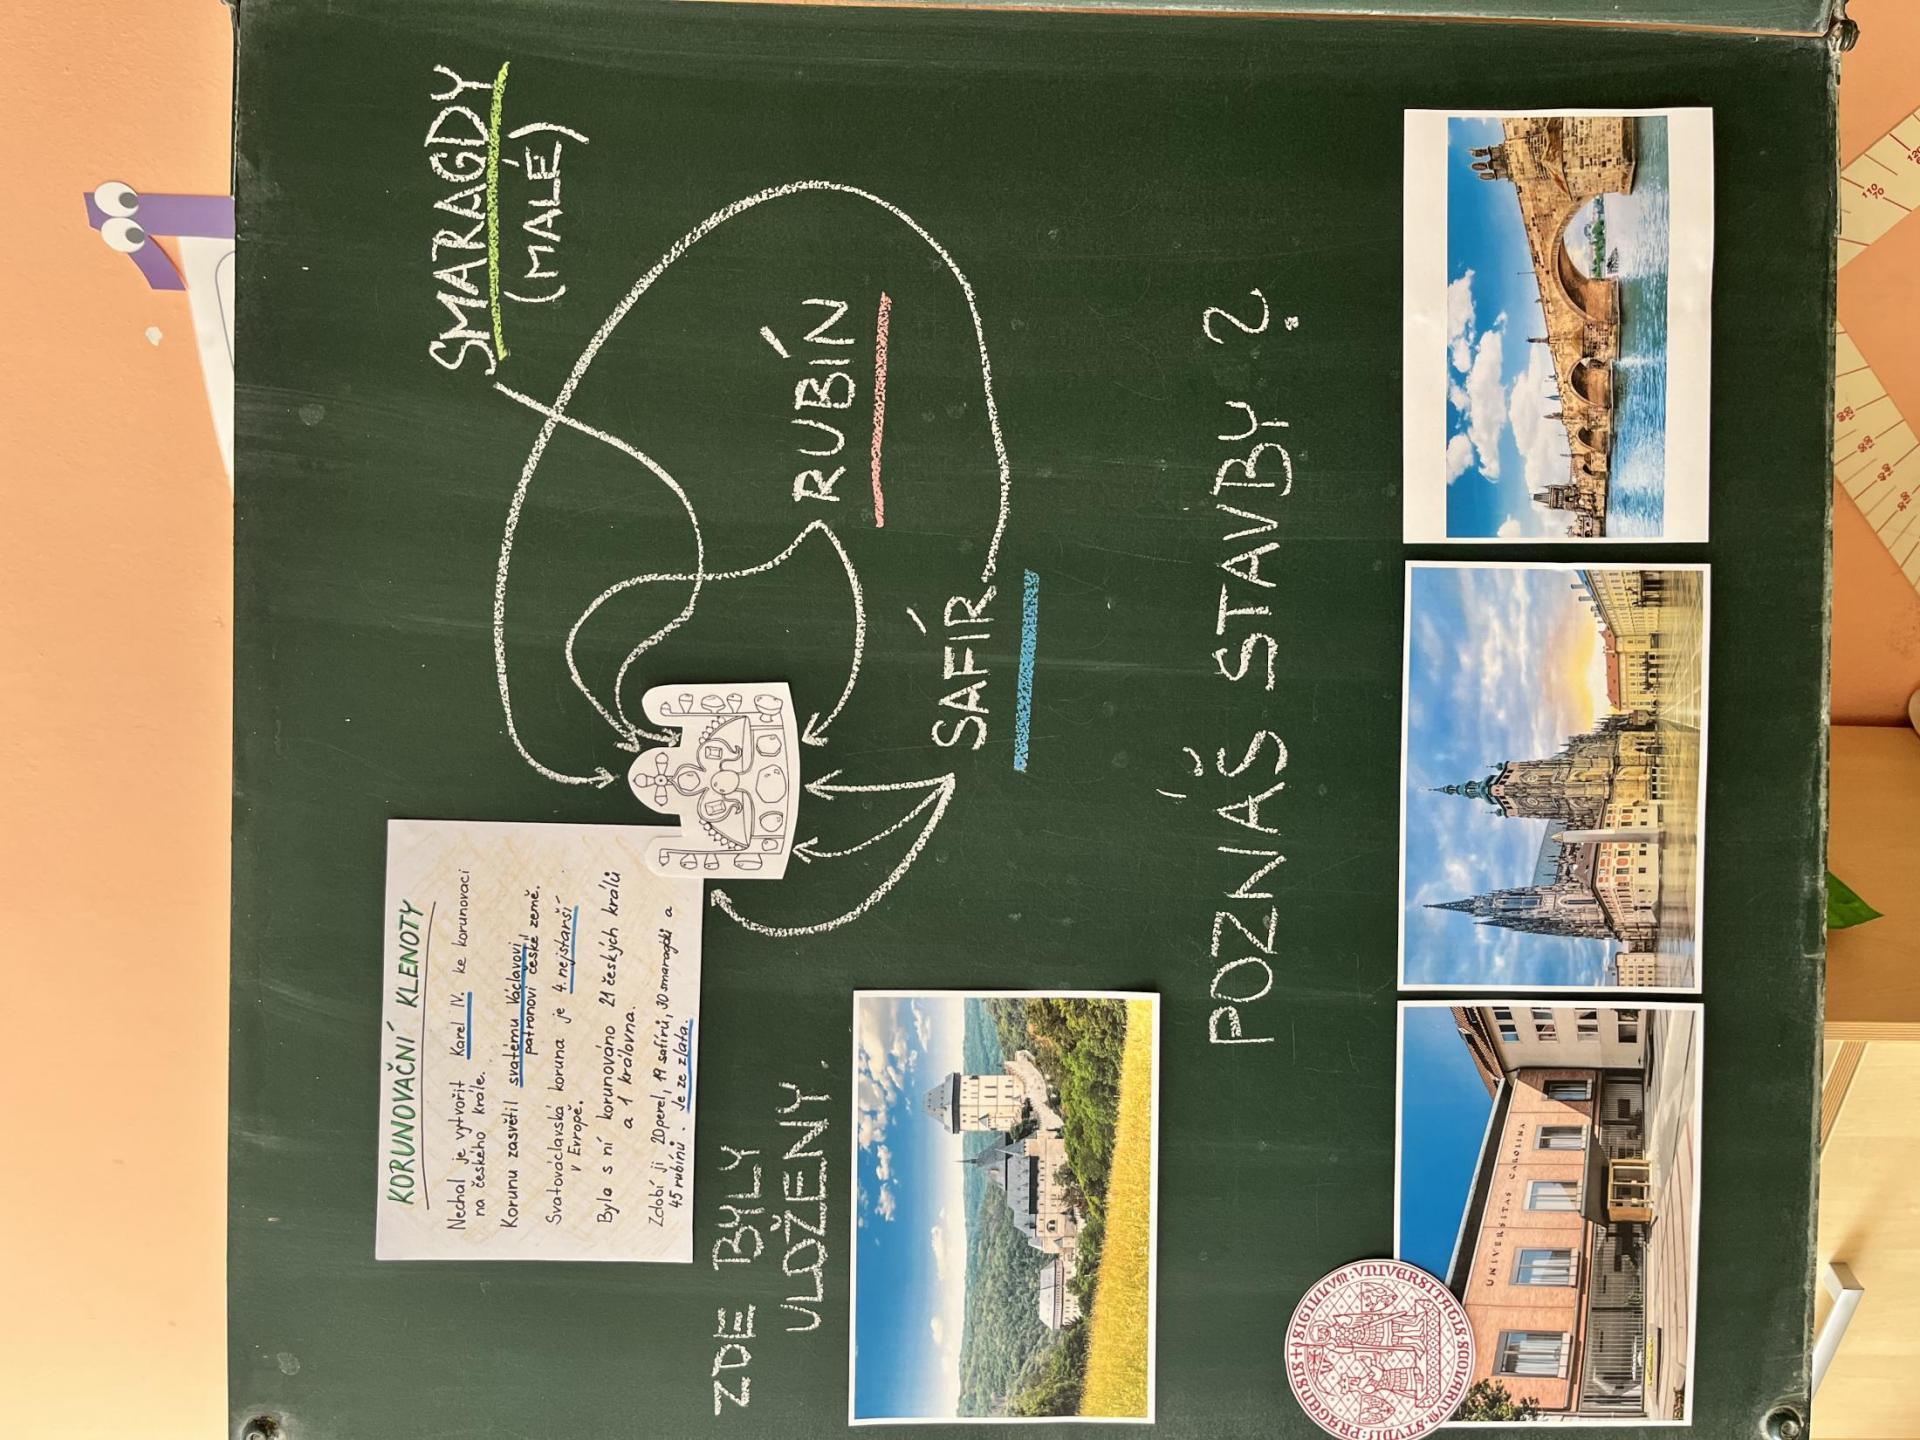 KORUNOVAČNÍ KLENOTY
Nechal je vytvořit Karel IV. ke korunovaci
na českého krále.
Korunu zasvětil svatému Václavovi
patronovi české země.
Svatováclavská koruna je 4. nejstarší
v Evropě.
Byla s ní korunováno 21 českých králů
a 1 královna.
Zdobí ji 20 perel, 19 safírů, 30 smaragdů a
45 rubínů. Je ze zlata.
SMARAGDY
(MALÉ)
RUBÍN
SAFÍR
ZDE BYLY
ULOŽENY.
POZNÁŠ STAVBY ?
UNIVERSITAS CAROLINA
SIGILLVM:VNIVERSITATIS:SCOLARIVM:STVDII:PRAGENSIS
110
70